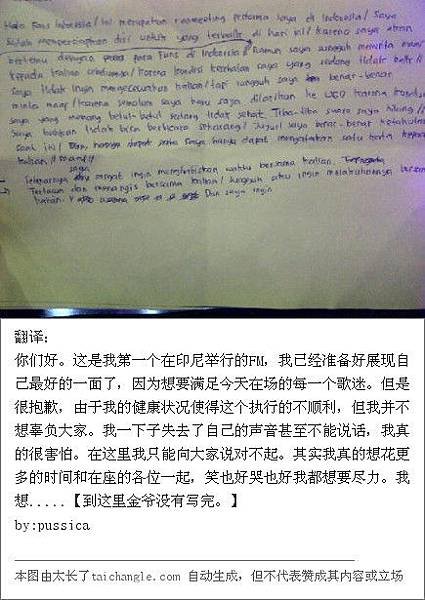 Halo Fans Indonesia / Ini merupakan fanmeeting pertama saya di Indonesia / Saya
Sudah mempersiapkan diri untuk yang terbaik di hari ini / karena saya akan
bertemu dengan para Fans di Indonesia / Namun saya sungguh meminta maaf
kepada kalian semuanya / karena kondisi kesehatan saya yang sedang tidak baik //
saya tidak ingin mengecewakan kalian / tapi sungguh saya benar-benar
minta maaf / karena sebelum saya baru saja dilarikan ke UGD karena kondisi
saya yang memang betul-betul sedang tidak sehat. Tiba-tiba suara saya hilang //
Saya bahkan tidak bisa berbicara sekarang / Jujur saya benar-benar ketakutan
saat ini / Dan saya hanya dapat mengatakan satu kata kepada
kalian // maaf //
Sebenarnya saya sangat ingin menghabiskan waktu bersama kalian.
Tertawa dan menangis bersama kalian / sungguh aku ingin melakukannya bersama
kalian. Dan saya ingin
翻译：
你们好。这是我第一个在印尼举行的FM，我已经准备好展现自
己最好的一面了，因为想要满足今天在场的每一个歌迷。但是
很抱歉，由于我的健康状况使得这个执行的不顺利，但我并不
想辜负大家。我一下子失去了自己的声音甚至不能说话，我真
的很害怕。在这里我只能向大家说对不起。其实我真的想花更
多的时间和在座的各位一起，笑也好哭也好我都想要尽力。我
想.....【到这里金爷没有写完。】
by:pussica
本图由太长了taichangle.com 自动生成，但不代表赞成其内容或立场